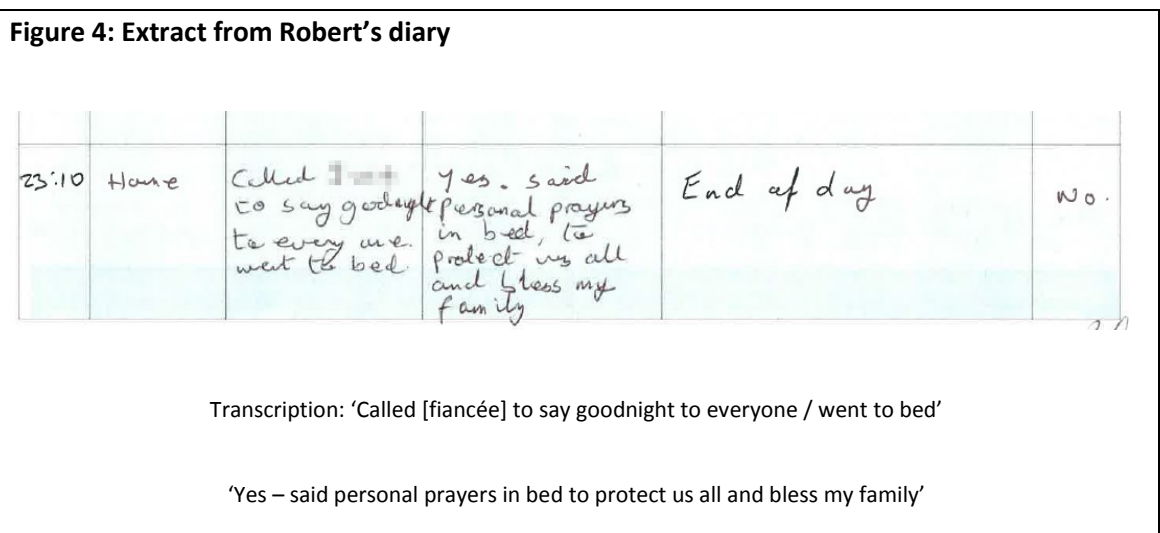 Figure 4: Extract from Robert’s diary
23:10
Home
Called
to say goodnight
to every one.
went to bed.
Yes. said
personal prayers
in bed, to
protect us all
and bless my
family
End of day
No.
Transcription: ‘Called [fiancée] to say goodnight to everyone / went to bed’
‘Yes – said personal prayers in bed to protect us all and bless my family’